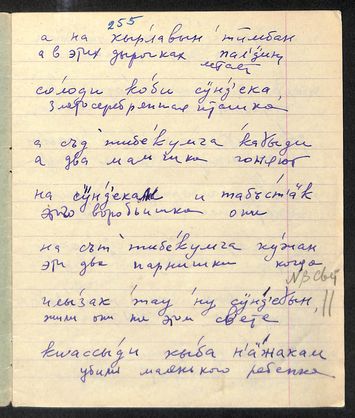 255
а на кырлавын тымбан
а в этих дырочках
летает
со́лоди ко́би сӱнд'е́ка
Златосеребренная пташка
а съд тибе́кумга кабыди
а два мальчика гоняют
на сӱнд'екам и табы́ст'äк
этого воробышка они
на сът тибе́кумга ку́жан
эти два парнишки когда
илы́зак тау ну сӱнд'е́бын,
жили они на этом свете
квассы́ди кы́ба н'äн'акам
убили маленького ребенка